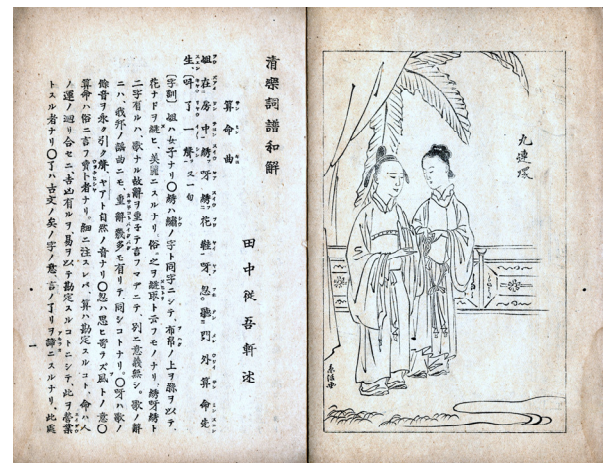 九連環
清樂詞譜和解
田中從吾軒述
算命曲
姐在房中綉呀綉花鞋呀忽聽門外算命先
生呌了一聲又一句
〔字訓〕姐ハ女子ナリ〇綉ハ繡ノ字ト同字ニシテ、布帛ノ上ヲ縢ヲ以テ、
花ナドヲ縫ヒ、美麗ニスルナリ、俗ニ之ヲ縫取ト云フモノナリ、綉呀綉ト
二字有ルハ、歌ナル故辭ヲ重子テ言フマデニテ、別ニ意義無シ。歌ノ辭
ニハ、我邦ノ謠曲ニモ、重辭幾多モ有リテ、同シコトナリ。〇呀ハ歌ノ
餘音ヲ永ク引ク聲、ヤアト自然ノ音ナリ〇忽ハ思ヒ寄ラズ風トノ意〇
算命ハ俗ニ言フ賣卜者ナリ。細ニ注スレバ、算ハ勘定スルコト、命ハ人
ノ運ノ廻リ合セニ、吉凶有ルヲ、易ヲ以テ勘定スルコトニシテ、此ヲ營業
トスル者ナリ〇了ハ古文ノ矣ノ字ノ意、言ノ了リヲ諦ニスルナリ、此處
一